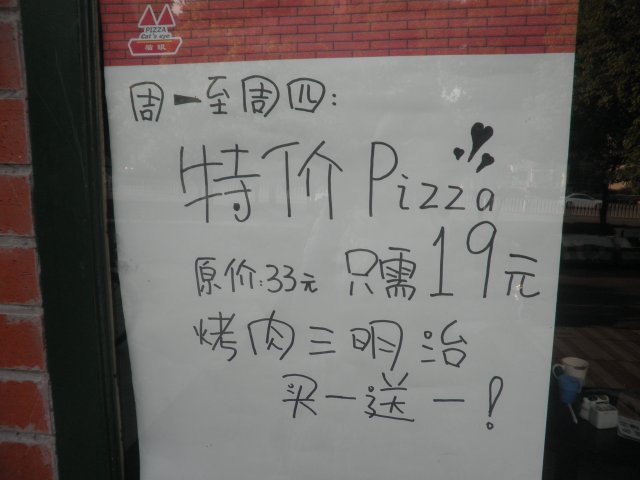 PIZZA
Cat's eye
猫眼
周一至周四:
特价Pizza
原价:33元 只需19元
烤肉三明治
买一送一!